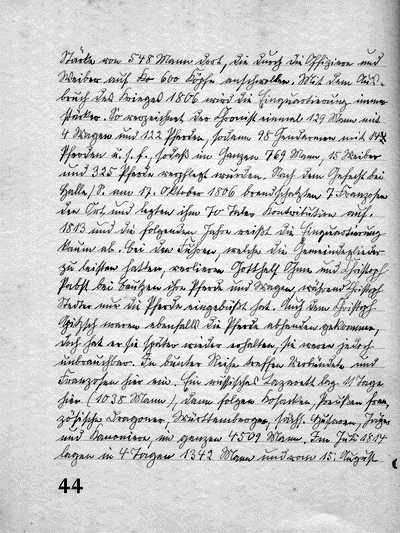 Stärke von 548 Mann dort, die durch die Offiziere und
Weiber auf 600 Köpfe anschwollen. Mit dem Aus-
bruch des Krieges 1806 wird die Einquartierung immer
stärker. So verzeichnet der Chronist einmal 129 Mann mit
4 Wagen und 122 Pferden, sodann 98 Gendarmen mit
Pferden u.s.f., sodaß im Ganzen 769 Mann, 15 Weiber
und 325 Pferde verpflegt wurden. Nach dem Gefecht bei
Halle/S. am 17. Oktober 1806 brandschatzten 7 Franzosen
den Ort und legten ihm 70 Taler Kontribution auf.
1813 und die folgenden Jahre reißt die Einquartierung
kaum ab. Bei den Fuhren, welche die Gemeindeglieder
zu leisten hatten, verlieren Gotthelf und Christoph
Pabst bei Bautzen ihre Pferde und Wagen, während Christoph
nur die Pferde eingebüßt hat. Auch dem Christoph
waren ebenfalls die Pferde abhanden gekommen,
doch hat er sie später wieder erhalten, sie waren jedoch
unbrauchbar. In bunter Reihe treffen Verbündete und
Franzosen hier ein. Ein russisches Lazarett lag 11 Tage
hier (1038 Mann), dann folgen Kosacken, Preußen, fran-
zösische Dragoner, Württemberger, sächs. Husaren, Jäger
und Kanoniere, im ganzen 4509 Mann. Im Juli 1814
lagen in 4 Tagen 1342 Mann und vom 15. August
44